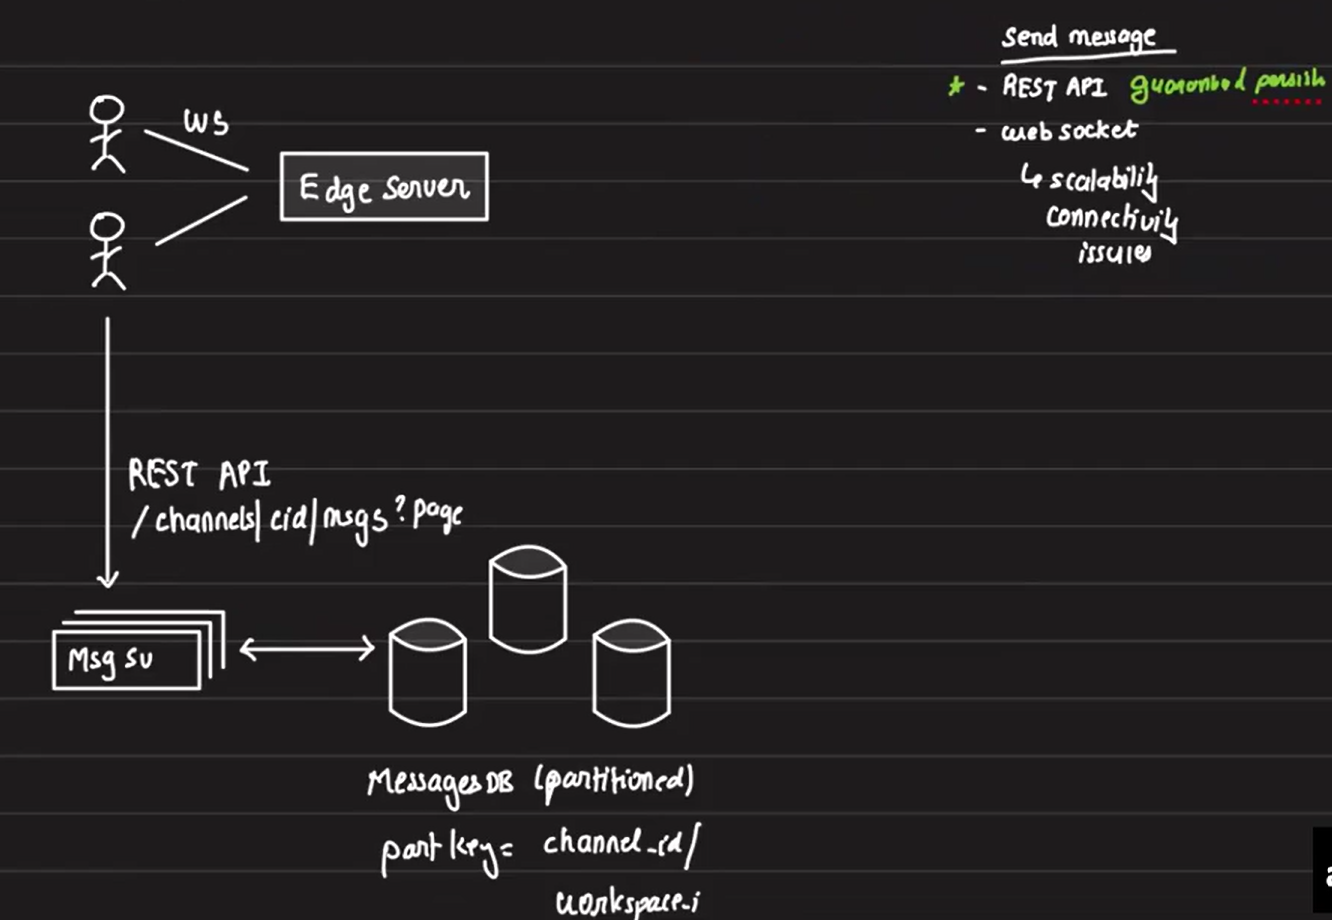 Send message
* - REST API guaranteed persist
- web socket
↳ scalability
connectivity
issues
WS
Edge Server
REST API
/channels/cid/msgs?page
Msg sv
Messages DB (partitioned)
part key = channel_id/
workspace_i